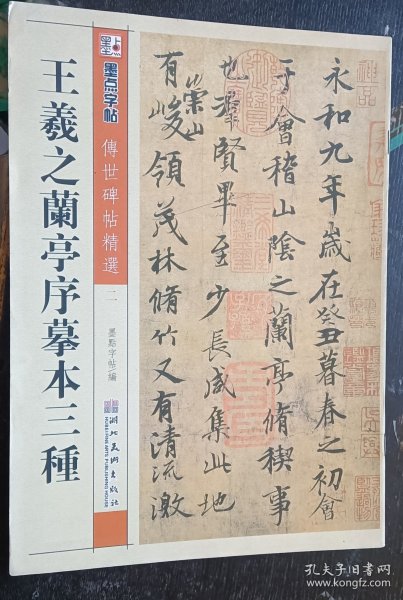 墨点
墨点字帖
傳世碑帖精選
二
墨點字帖/編
湖北美術出版社
HUBEI FINE ARTS PUBLISHING HOUSE
王羲之蘭亭序摹本三種
永和九年歲在癸丑暮春之初會
于會稽山陰之蘭亭脩稧事
也群賢畢至少長咸集此地
有崇山峻領茂林脩竹又有清流激
神品
孔夫子旧书网
www.kongfz.com